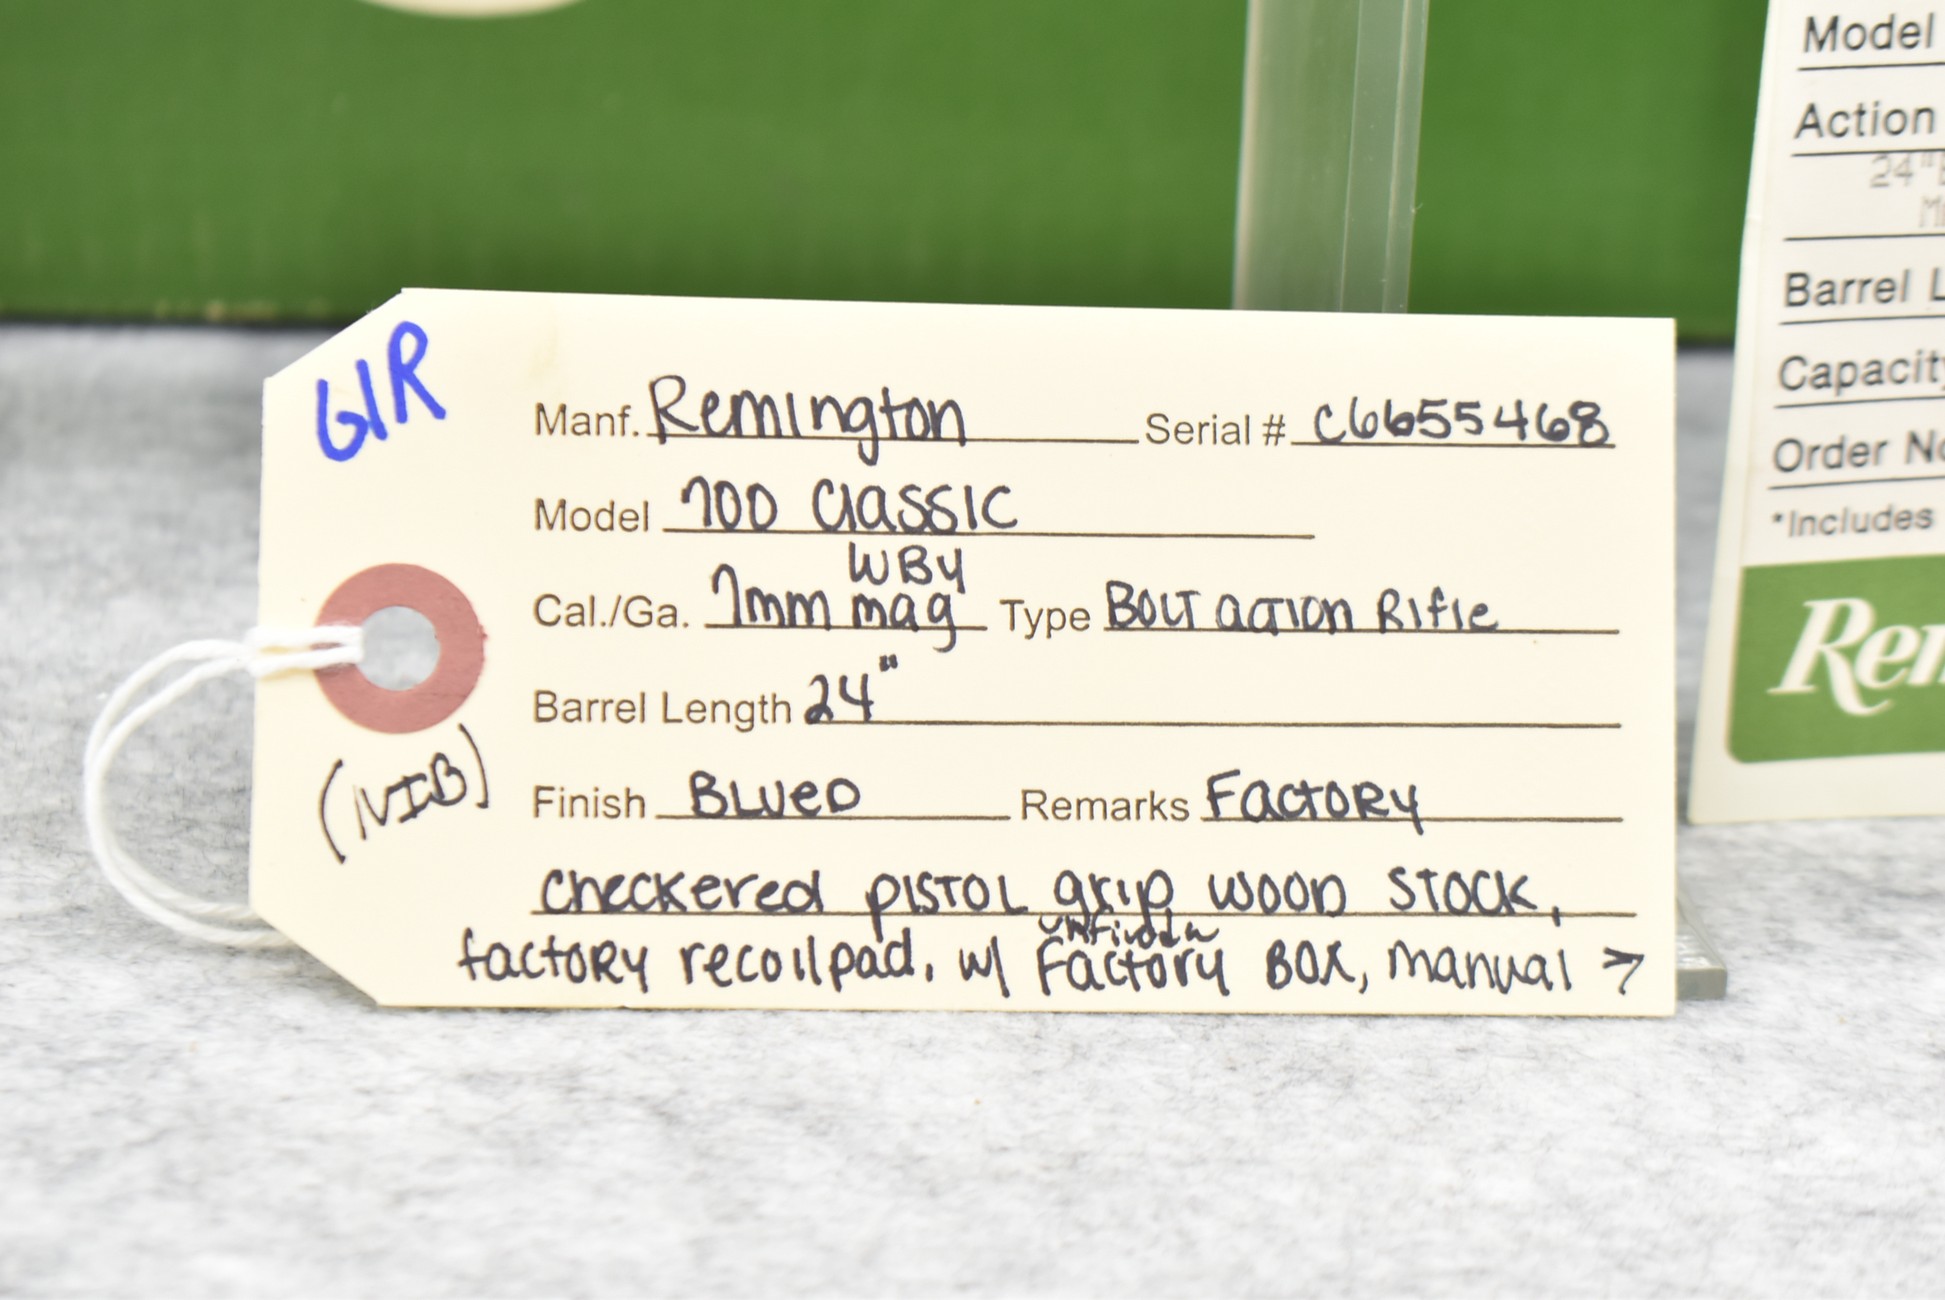 GIR
Manf. Remington Serial # C6655468
Model 700 Classic
WBY
Cal./Ga. 7mm mag Type Bolt action Rifle
Barrel Length 24"
(NIB)
Finish Blued Remarks Factory
checkered pistol grip wood stock,
factory recoilpad, w/ Factory Box, manual →
Model
Action
24"
Barrel L
Capacity
Order No
*Includes
Rem